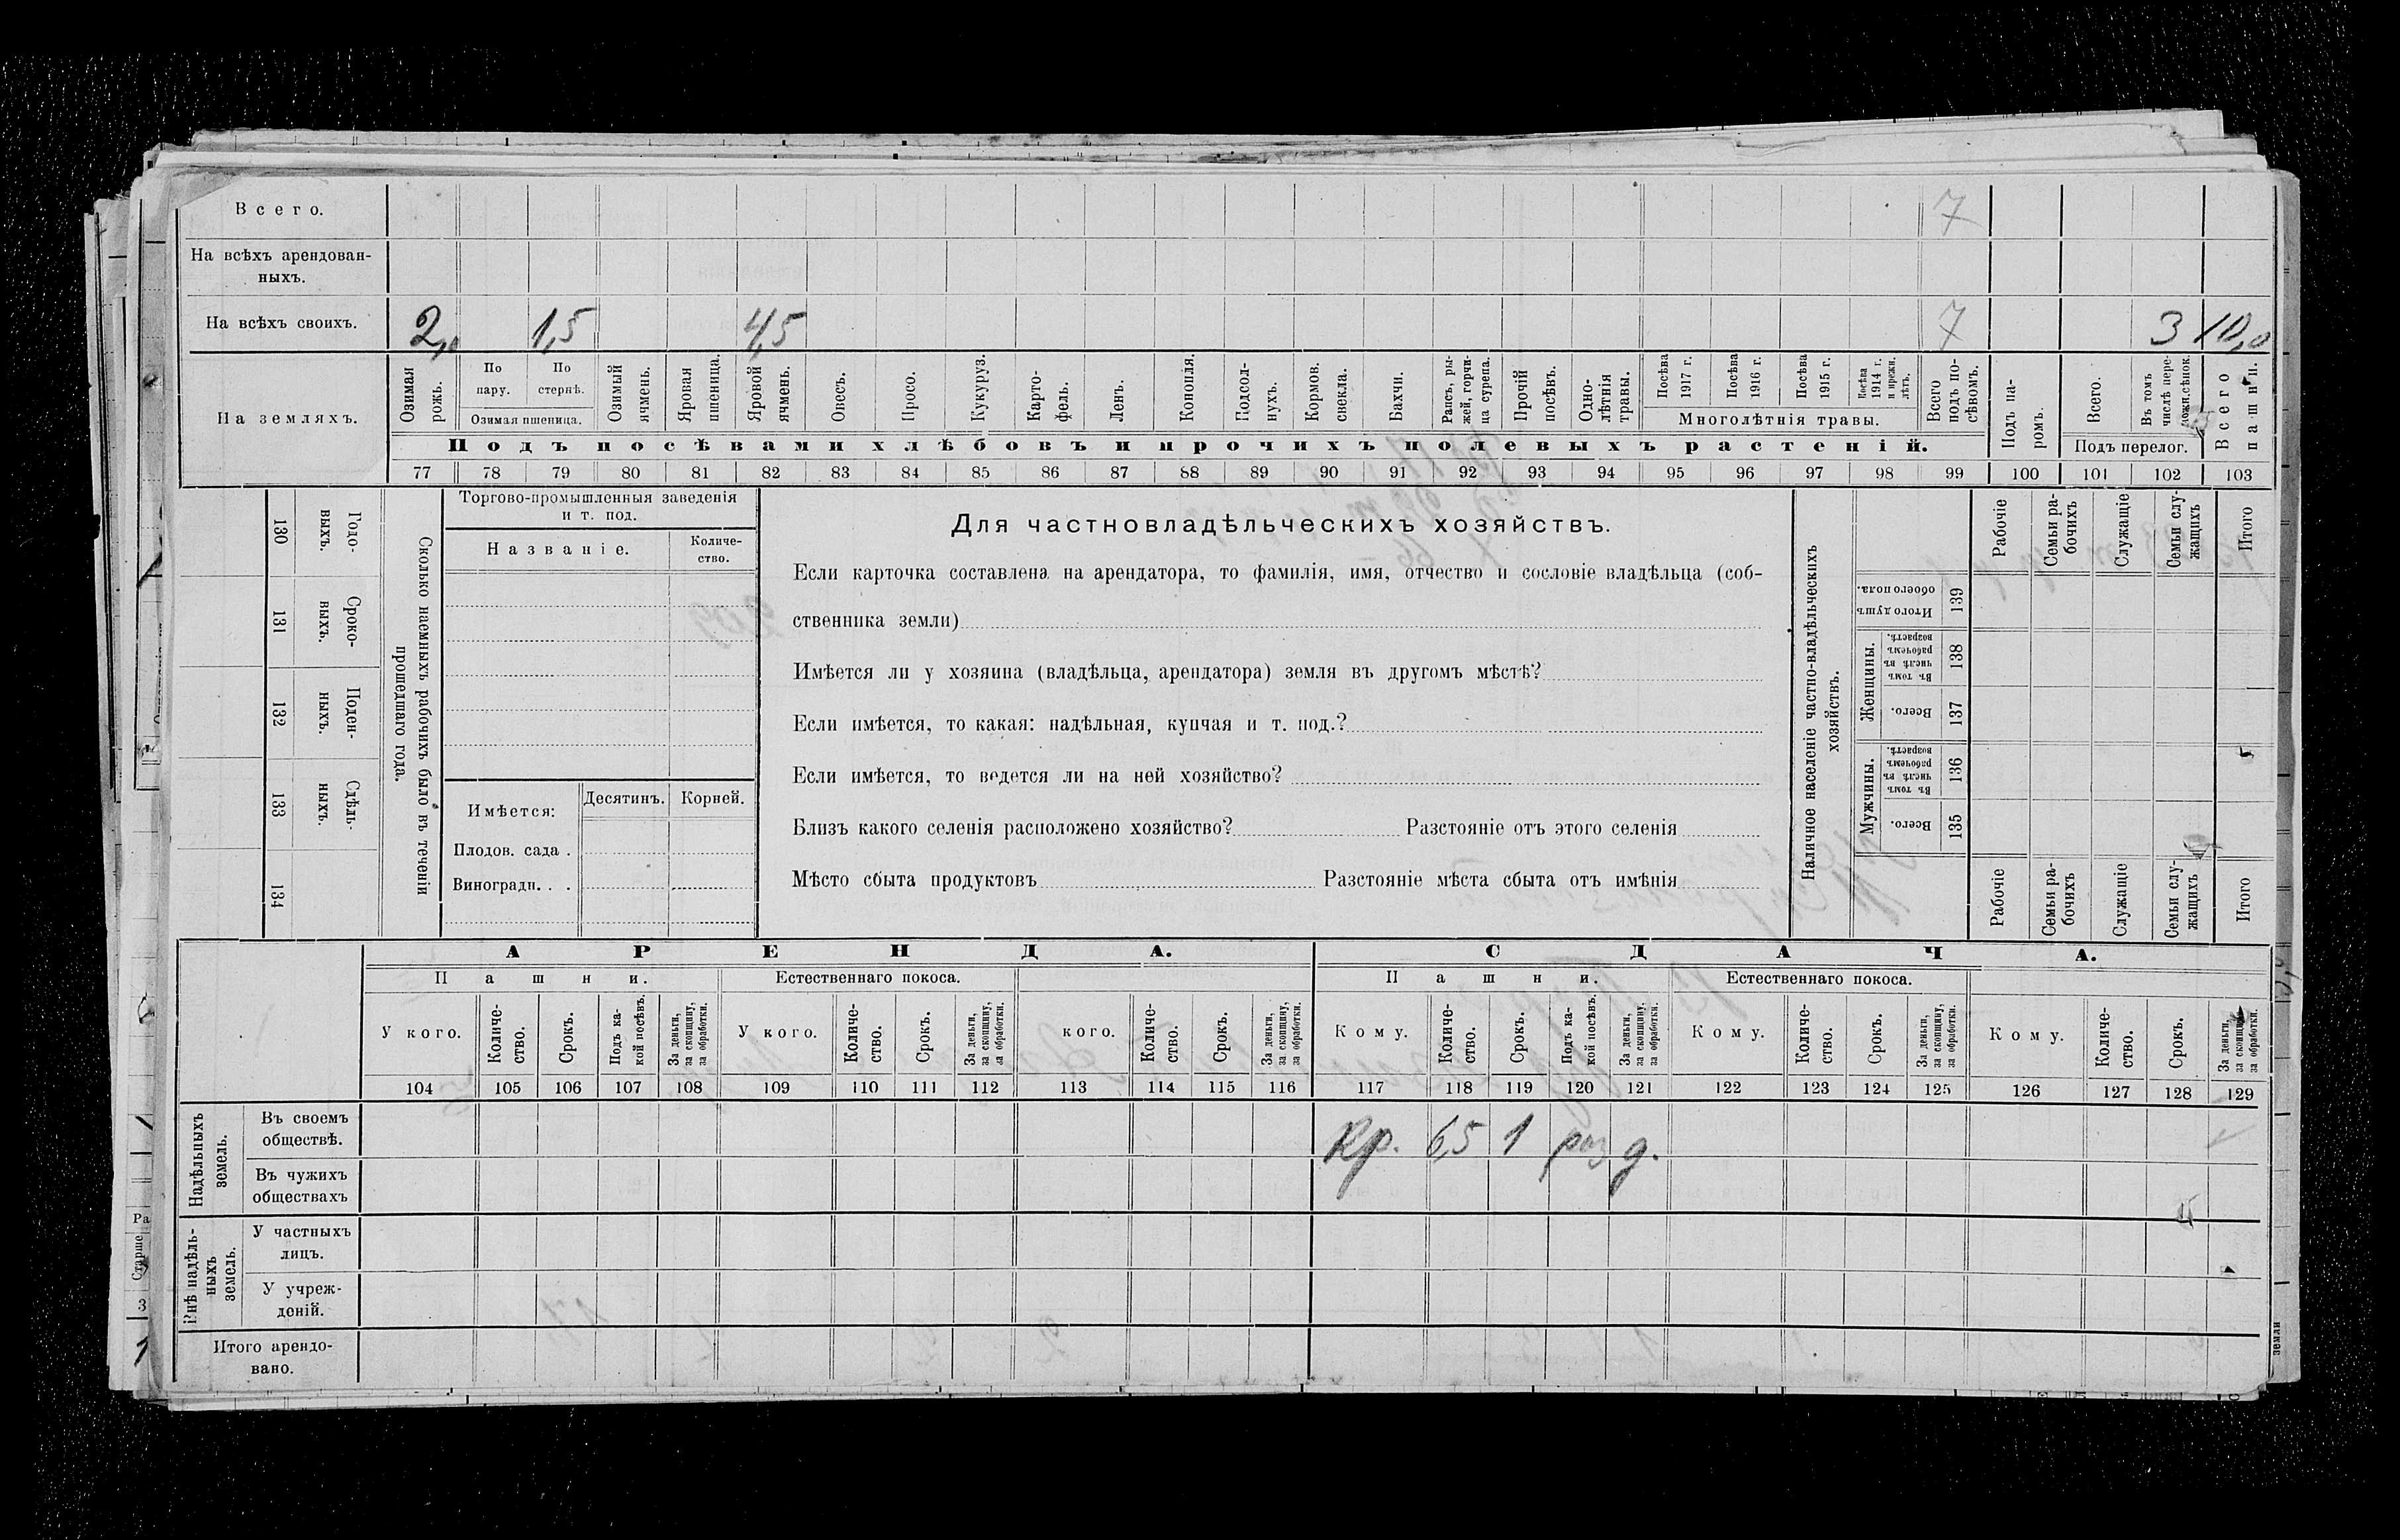 Всего. 7
На всѣхъ арендован-
ныхъ.
На всѣхъ своихъ. 2,0 1,5 4,5 7 3 10,0
На земляхъ.
Озимая рожь.
По пару.
По стернѣ.
Озимая пшеница.
Озимый ячмень.
Яровая пшеница.
Яровой ячмень.
Овесъ.
Просо.
Кукуруз.
Карто-
фель.
Ленъ.
Конопля.
Подсол-
нухъ.
Кормов. свекла.
Бахчи.
Рапсъ, ры-
жей, горчи-
ца сурепа.
Прочій посѣвъ.
Одно-
лѣтнія травы.
Посѣва 1917 г.
Посѣва 1916 г.
Посѣва 1915 г.
Посѣва 1914 г. и прежн. лѣтъ.
Многолѣтнія травы.
Всего подъ по-
сѣвомъ.
Подъ па-
ромъ.
Всего.
Въ томъ числѣ пере-
Подъ перелог.
Всего пашни.
Подъ посѣвами хлѣбовъ и прочихъ полевыхъ растеній.
77 78 79 80 81 82 83 84 85 86 87 88 89 90 91 92 93 94 95 96 97 98 99 100 101 102 103
130 Годо-
выхъ.
131 Сроко-
выхъ.
132 Поден-
ныхъ.
133 Сдѣль-
ныхъ.
134
Сколько наемныхъ рабочихъ было въ теченіи
прошедшаго года.
Торгово-промышленныя заведенія
и т. под.
Названіе.
Количе-
ство.
Имѣется: Десятинъ. Корней.
Плодов. сада .
Виноградн. . .
Для частновладѣльческихъ хозяйствъ.
Если карточка составлена на арендатора, то фамилія, имя, отчество и сословіе владѣльца (соб-
ственника земли)
Имѣется ли у хозяина (владѣльца, арендатора) земля въ другомъ мѣстѣ?
Если имѣется, то какая: надѣльная, купчая и т. под.?
Если имѣется, то ведется ли на ней хозяйство?
Близъ какого селенія расположено хозяйство? Разстояніе отъ этого селенія
Мѣсто сбыта продуктовъ Разстояніе мѣста сбыта отъ имѣнія
Наличное населеніе частно-владѣльческихъ
хозяйствъ.
Рабочіе
Семьи ра-
бочихъ
Служащіе
Семьи слу-
жащихъ
Итого
Итого душъ обоего пола. 139
Женщины.
Въ томъ числѣ въ рабочемъ возрастѣ. 138
Всего. 137
Мужчины.
Въ томъ числѣ въ рабочемъ возрастѣ. 136
Всего. 135
Рабочіе
Семьи ра-
бочихъ
Служащіе
Семьи слу-
жащихъ
Итого
АРЕНДА. СДАЧА.
Пашни. Естественнаго покоса. Пашни. Естественнаго покоса.
У кого.
Количе-
ство.
Срокъ.
Подъ ка-
кой посѣвъ.
За деньги,
за скопщину,
за обработки.
У кого.
Количе-
ство.
Срокъ.
За деньги,
за скопщину,
за обработки.
кого.
Количе-
ство.
Срокъ.
За деньги,
за скопщину,
за обработки.
Кому.
Количе-
ство.
Срокъ.
Подъ ка-
кой посѣвъ.
За деньги,
за скопщину,
за обработки.
Кому.
Количе-
ство.
Срокъ.
За деньги,
за скопщину,
за обработки.
Кому.
Количе-
ство.
Срокъ.
За деньги,
за скопщину,
за обработки.
104 105 106 107 108 109 110 111 112 113 114 115 116 117 118 119 120 121 122 123 124 125 126 127 128 129
Надѣльныхъ
земель.
Въ своемъ
обществѣ. Кр. 6,5 1 раз д.
Въ чужихъ
обществахъ
Внѣ надѣль-
ныхъ
земель.
У частныхъ
лицъ.
У учреж-
деній.
Итого арендо-
вано.